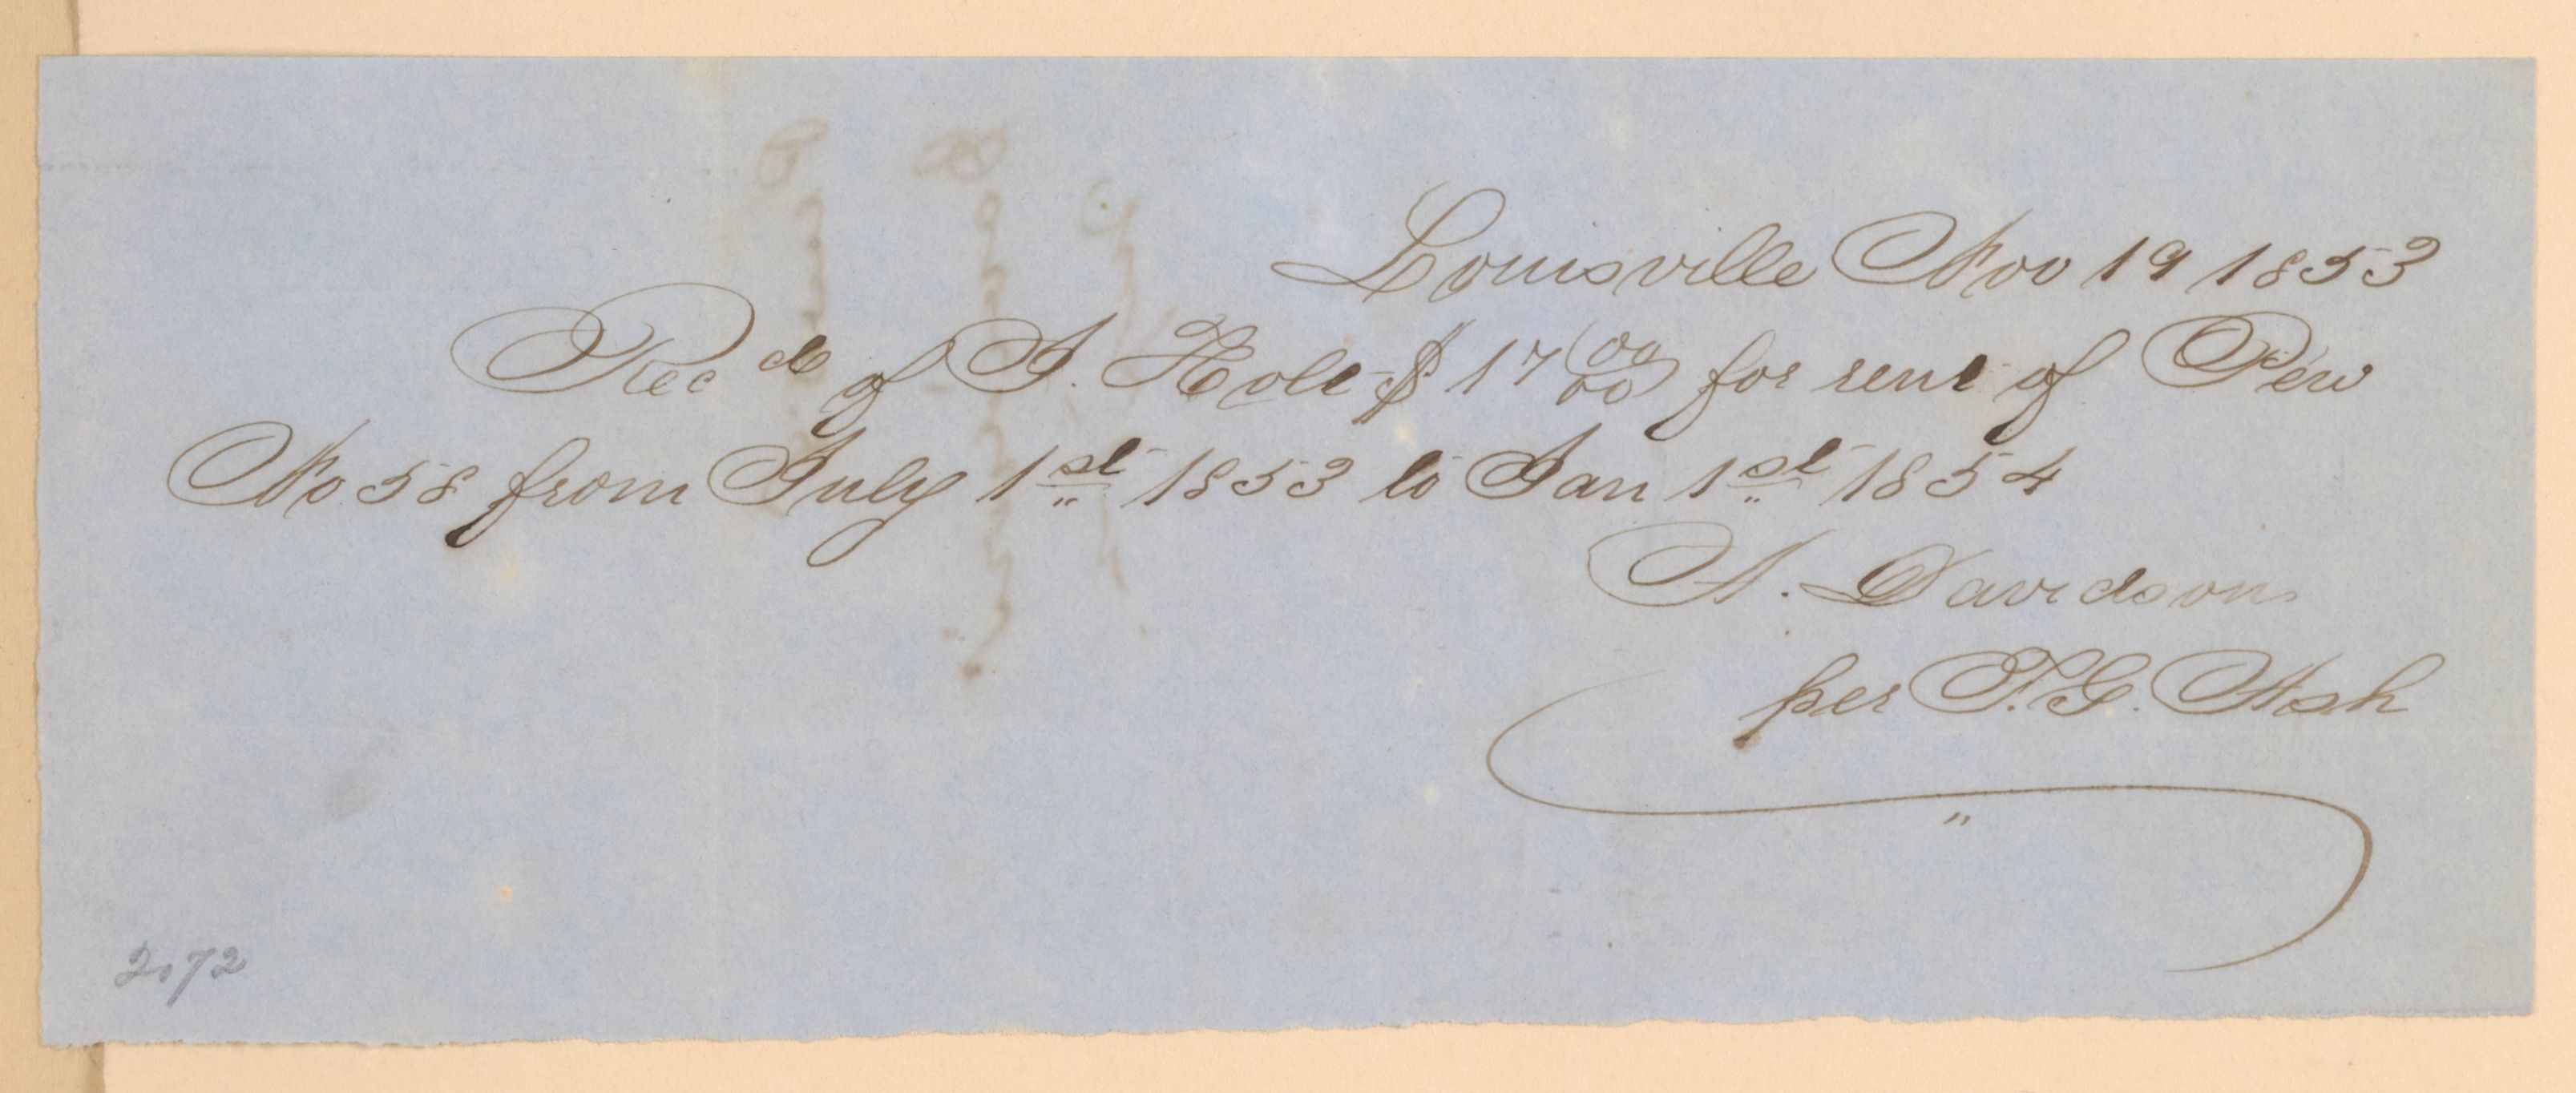 Louisville Nov 19 1853
Recd of J. Holt $17 00/00 for rent of Pew
No 58 from July 1st 1853 to Jan 1st 1854
A. Davidson
per T.G. Ash
2072